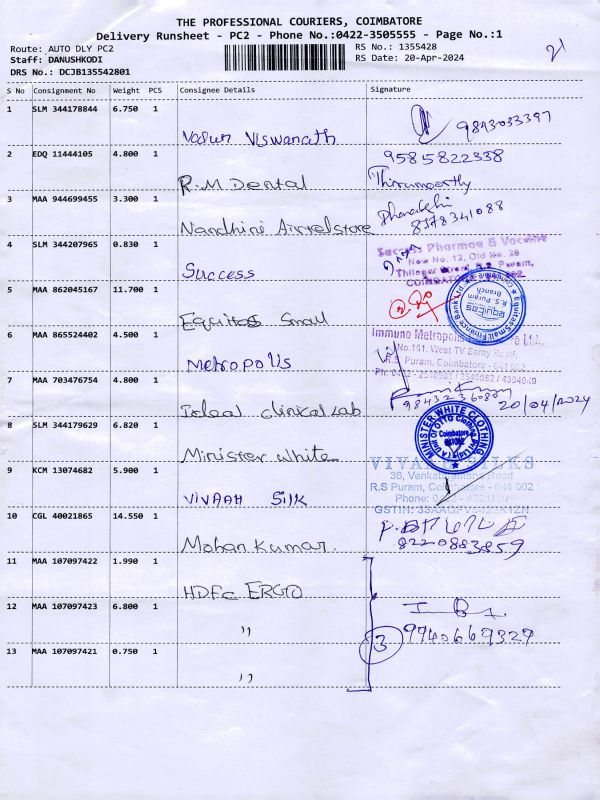 THE PROFESSIONAL COURIERS, COIMBATORE
Delivery Runsheet - PC2 - Phone No.:0422-3505555 - Page No.:1
Route: AUTO DLY PC2
RS No.: 1355428
Staff: DANUSHKODI
RS Date: 20-Apr-2024
DRS No.: DCJB135542801
21
S No Consignment No Weight PCS Consignee Details Signature
1 SLM 344178844 6.750 1
Vasun Viswanath 9843033397
2 EDQ 11444105 4.800 1 9585822338
R.M Dental Thirumoorthy
3 MAA 944699455 3.300 1
Nandhini Airtelstore 8578341088
4 SLM 344207965 0.830 1 Success Pharma & Vaccine
New No. 13, Old No. 39
Success
COIMBATORE
5 MAA 862045167 11.700 1
Equitas Small Equitas Small Finance Bank Ltd. R.S Puram Branch
6 MAA 865524402 4.500 1 Immuno Metropolis
No.161, West TV Samy Road,
Metropolis R.S. Puram, Coimbatore - 641 002
7 MAA 703476754 4.800 1
Ideal clinical Lab 20/04/2024
8 SLM 344179629 6.820 1 MINISTER WHITE CLOTHING
Minister white
9 KCM 13074682 5.900 1 SILKS
R.S Puram, Coimbatore - 641 002
VIVAAH SILK Phone:
GSTIN:
10 CGL 40021865 14.550 1
Mohan Kumar. 8220883859
11 MAA 107097422 1.990 1
HDFC ERGO
12 MAA 107097423 6.800 1
" 3 9740669329
13 MAA 107097421 0.750 1
"